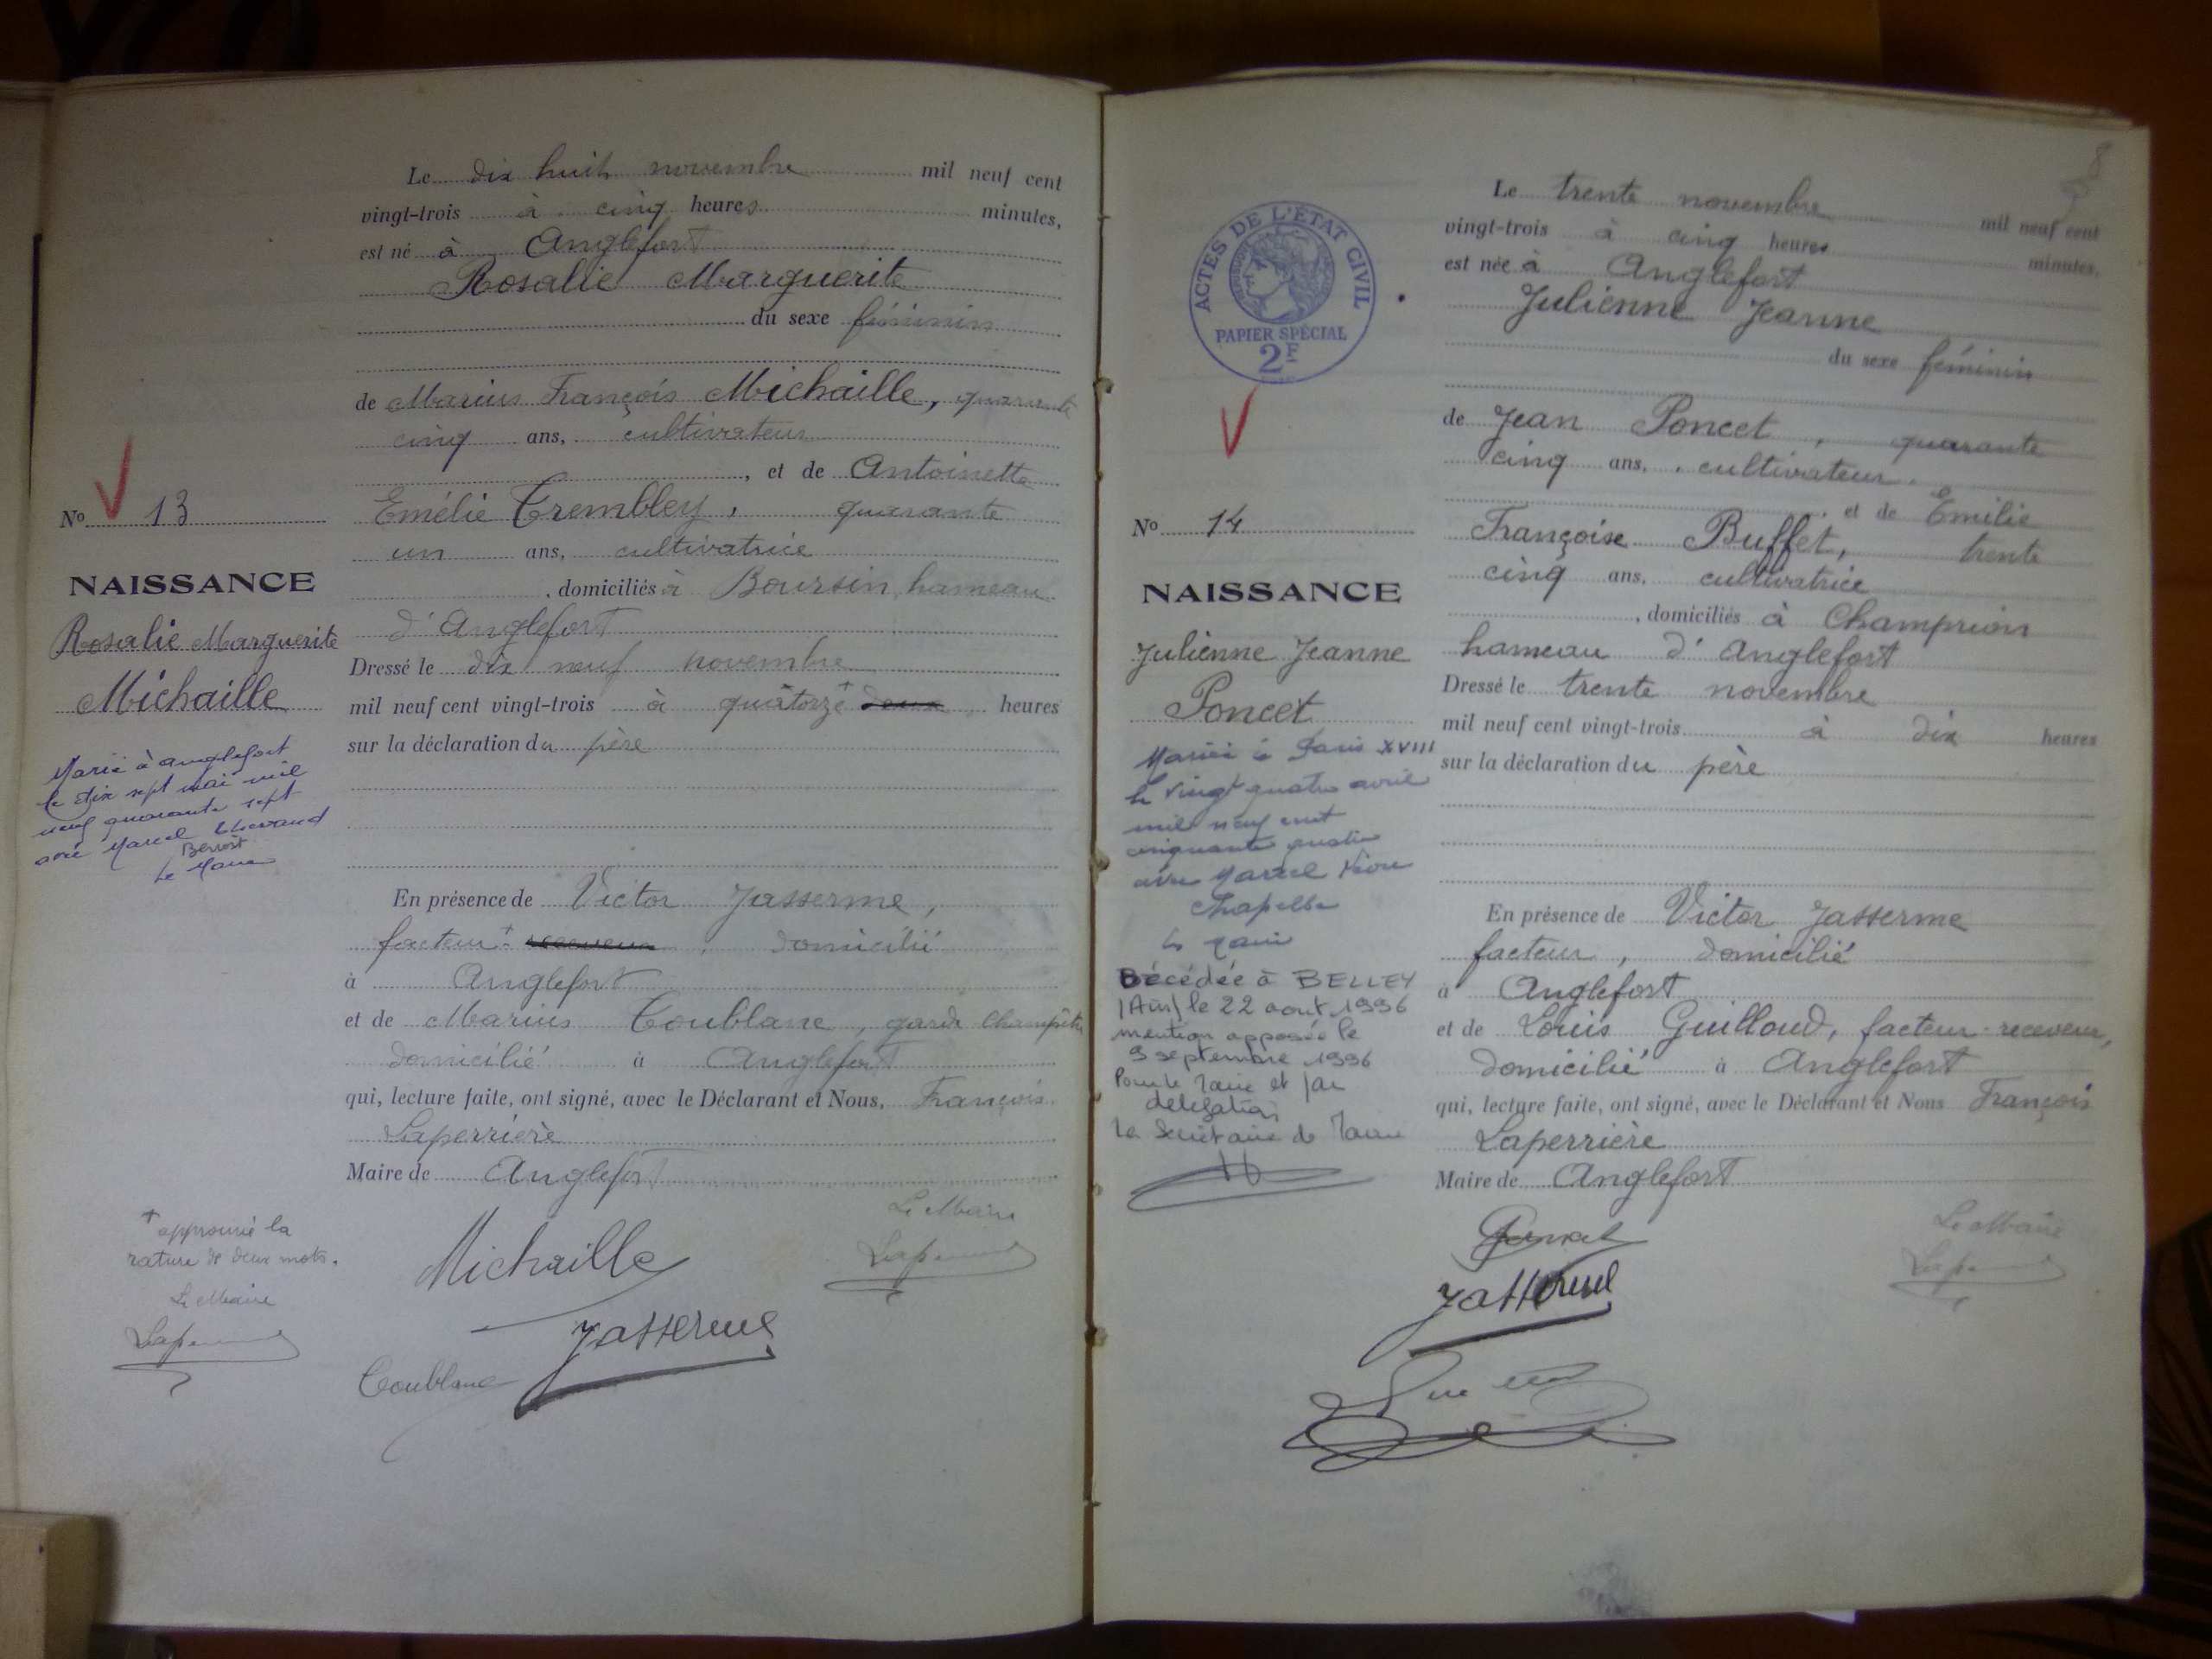 Le dix huit novembre mil neuf cent
vingt-trois à cinq heures minutes,
est né à Anglefort
Rosalie Marguerite
du sexe féminin
de Marius François Michaille, quarante
cinq ans, cultivateur
, et de Antoinette
Emélie Trembley, quarante
un ans, cultivatrice
, domiciliés à Boursin, hameau
d'Anglefort
Dressé le dix neuf novembre
mil neuf cent vingt-trois à quatorze + heures
sur la déclaration du père
En présence de Victor Jasserme,
facteur + , domicilié
à Anglefort
et de Marius Toublanc, garde champêtre
domicilié à Anglefort
qui, lecture faite, ont signé, avec le Déclarant et Nous, François
Laperrière
Maire de Anglefort
Nº 13
NAISSANCE
Rosalie Marguerite
Michaille
Marié à Anglefort
le dix sept mai mil
neuf quarante sept
avec Marcel
Benoit
Le Maire
+ approuvé la
rature de deux mots.
Le Maire
Michaille
Le Maire
Jasserme
Toublanc
8
ACTES DE L'ÉTAT CIVIL
PAPIER SPÉCIAL
2F
Nº 14
NAISSANCE
Julienne Jeanne
Poncet
Mariée à Paris XVIII
le vingt quatre avril
mil neuf cent
cinquante quatre
avec Marcel
Chapelle
Le Maire
Décédée à BELLEY
(Ain) le 22 aout 1996
mention apposée le
9 septembre 1996
Pour le Maire et par
délégation
La Secrétaire de Mairie
Le trente novembre mil neuf cent
vingt-trois à cinq heures minutes,
est née à Anglefort
Julienne Jeanne
du sexe féminin
de Jean Poncet, quarante
cinq ans, cultivateur
et de Emilie
Françoise Buffet, trente
cinq ans, cultivatrice
, domiciliés à Champrion
hameau d'Anglefort
Dressé le trente novembre
mil neuf cent vingt-trois à dix heures
sur la déclaration du père
En présence de Victor Jasserme
facteur, domicilié
à Anglefort
et de Louis Guilloud, facteur-receveur,
domicilié à Anglefort
qui, lecture faite, ont signé, avec le Déclarant et Nous François
Laperrière
Maire de Anglefort
Le Maire
Jasserme